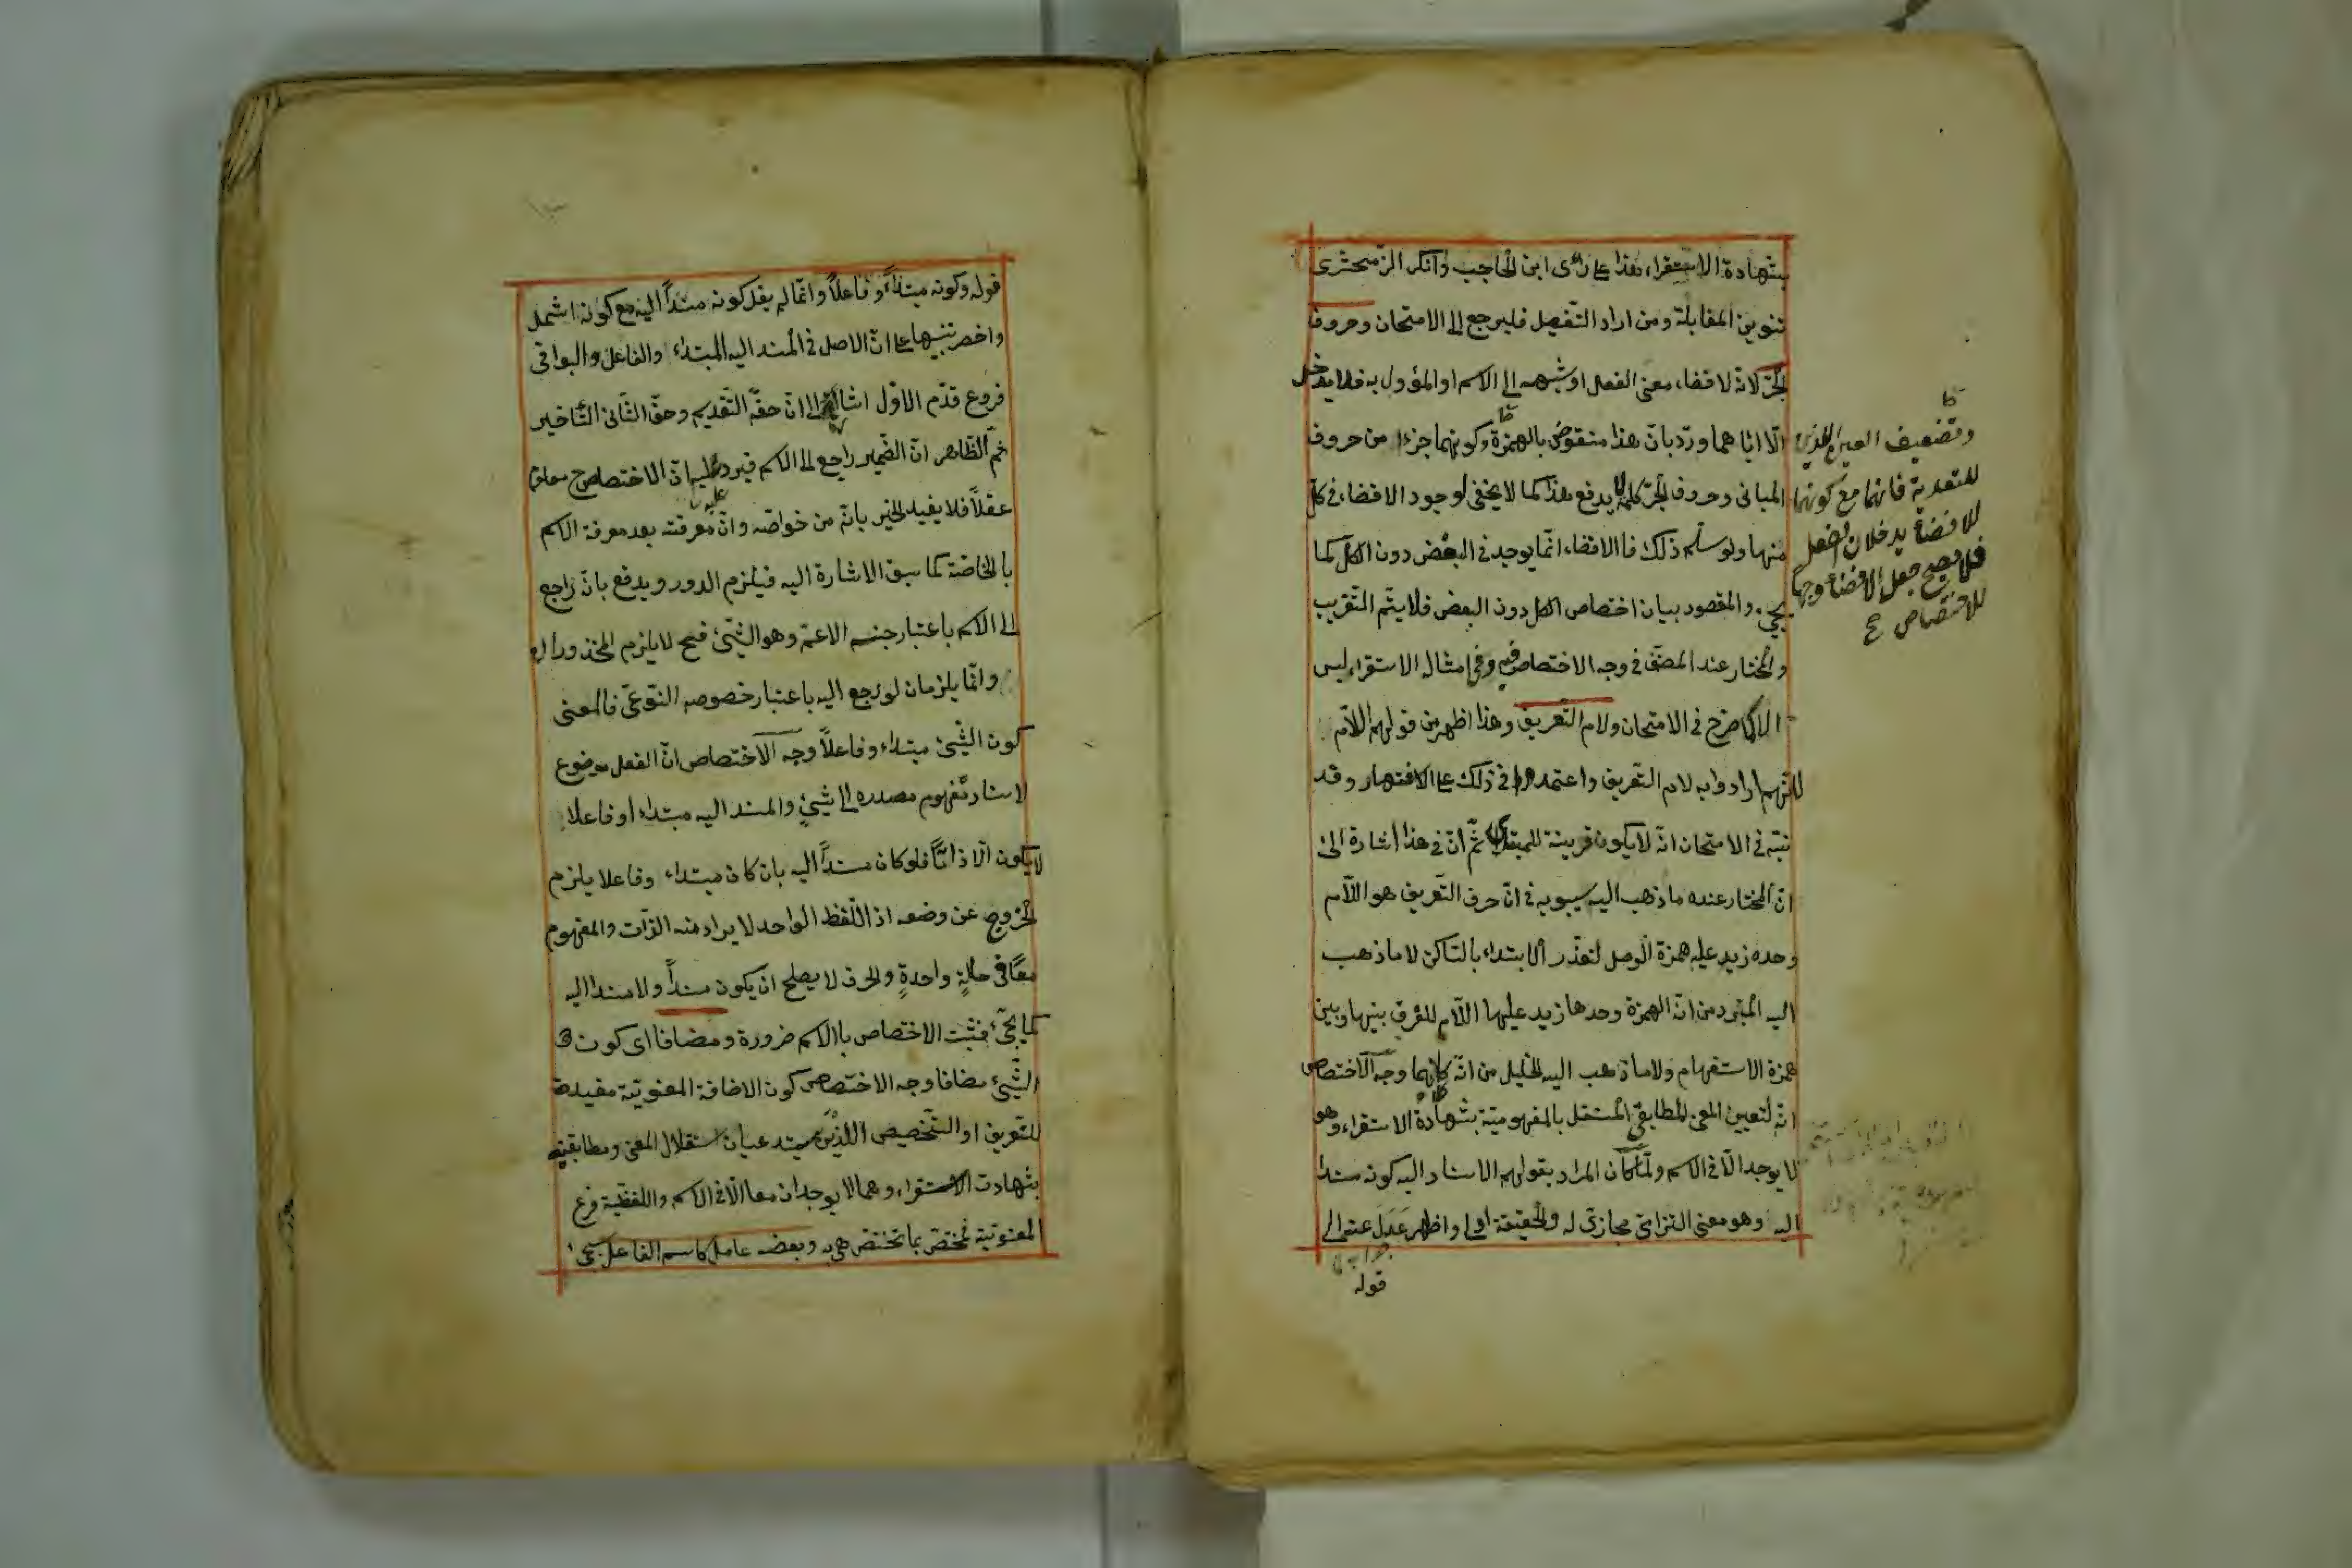 بشهادة الاستقراء هذا على رأى ابن الحاجب وانكر الزّمخشرى
تنوين المقابلة ومن اراد التّفصيل فليرجع الى الامتحان وحروف
الجرّ لانّه لافضاء معنى الفعل او شبهه الى الاسم او المؤول به فلا يدخل
الّا اياهما وردّ بانّ هذا منقوض بالهمزة وكونهما جزءا من حروف
المبانى وحروف الجرّ كلمة لا يدفع هذا كما لا يخفى لوجود الافضاء فى كلّ
منهما ولو سلّم ذلك فالافضاء انّما يوجد فى البعض دون الكلّ كما
يجئ والمقصود بيان اختصاص الكل دون البعض فلا يتم التّقريب
والمختار عند المصنّف فى وجه الاختصاص فيه وفى امثاله الاستقراء ليس
الا كما صرح فى الامتحان ولام التّعريف وهذا اظهر من قولهم اللّام
لانّهم ارادوا به لام التّعريف واعتمدوا فى ذلك على الاشتهار وقد
نبّه فى الامتحان انّه لا يكون قرينة للمبتدى ثمّ انّ فى هذا اشارة الى
انّ المختار عنده ما ذهب اليه سيبويه فى انّ حرف التّعريف هو اللّام
وحده زيد عليه همزة الوصل لتعذّر الابتداء بالسّاكن لا ما ذهب
اليه المبرّد من انّ الهمزة وحدها زيد عليها اللّام للفرق بينها وبين
همزة الاستفهام ولا ما ذهب اليه الخليل من انّه كلاهما وجه الاختصاص
انّه لتعيين المعنى المطابقىّ المستقل بالمفهوميّة بشهادة الاستقراء وهو
لا يوجد الّا فى الاسم ولمّا كان المراد بقولهم الاسناد اليه كونه مسندا
اليه وهو معنى التزامىّ مجازىّ له والحقيقة اولى واظهر عدل عنه الى
قوله
وتضعيف العين
للتعدية فانهما مع كونهما
للافضاء يدخلان الفعل
فلا يصح جعل الافضاء وجها
للاختصاص صح
قوله وكونه مبتداءً وفاعلاً وانّما لم يقل كونه مسنداً اليه مع كونه اشمل
واخصر تنبيها على انّ الاصل فى المسند اليه المبتداء والفاعل والبواقى
فروع قدّم الاوّل اشارة الى انّ حقّه التّقديم وحقّ الثّانى التّأخير
ثمّ الظّاهر انّ الضّمير راجع الى الاسم فيرد عليه انّ الاختصاص ح معلوم
عقلاً فلا يفيد الخبر بانّه من خواصّه وانّ معرفته بعد معرفة الاسم
بالخاصّة كما سبق الاشارة اليه فيلزم الدور ويدفع بانّه راجع
الى الاسم باعتبار جنسه الاعمّ وهو الشّئ فح لا يلزم المحذوران
وانّما يلزمان لو رجع اليه باعتبار خصوصه النّوعىّ فالمعنى
كون الشّئ مبتداء وفاعلاً وجه الاختصاص انّ الفعل موضوع
لاسناد مفهوم مصدره الى شئ والمسند اليه مبتداء او فاعلا
لا يكون الّا ذاتاً فلو كان مسنداً اليه بان كان مبتداء وفاعلا يلزم
الخروج عن وضعه اذ اللّفظ الواحد لا يراد منه الذّات والمفهوم
معًا فى حالةٍ واحدةٍ والحرف لا يصلح ان يكون مسنداً ولا مسندا اليه
كما يجئ فثبت الاختصاص بالاسم ضرورة ومضافا اى كون
الشّئ مضافا وجه الاختصاص كون الاضافة المعنويّة مفيدة
للتعريف او التّخصيص اللّذين يستدعيان استقلال المعنى ومطابقيته
بشهادت الاستقراء وهما لا يوجدان معا الّا فى الاسم واللفظيّة فرع
المعنويّة تختصّ بما تختصّ هى به وبعضه عامل كاسم الفاعل يجئ